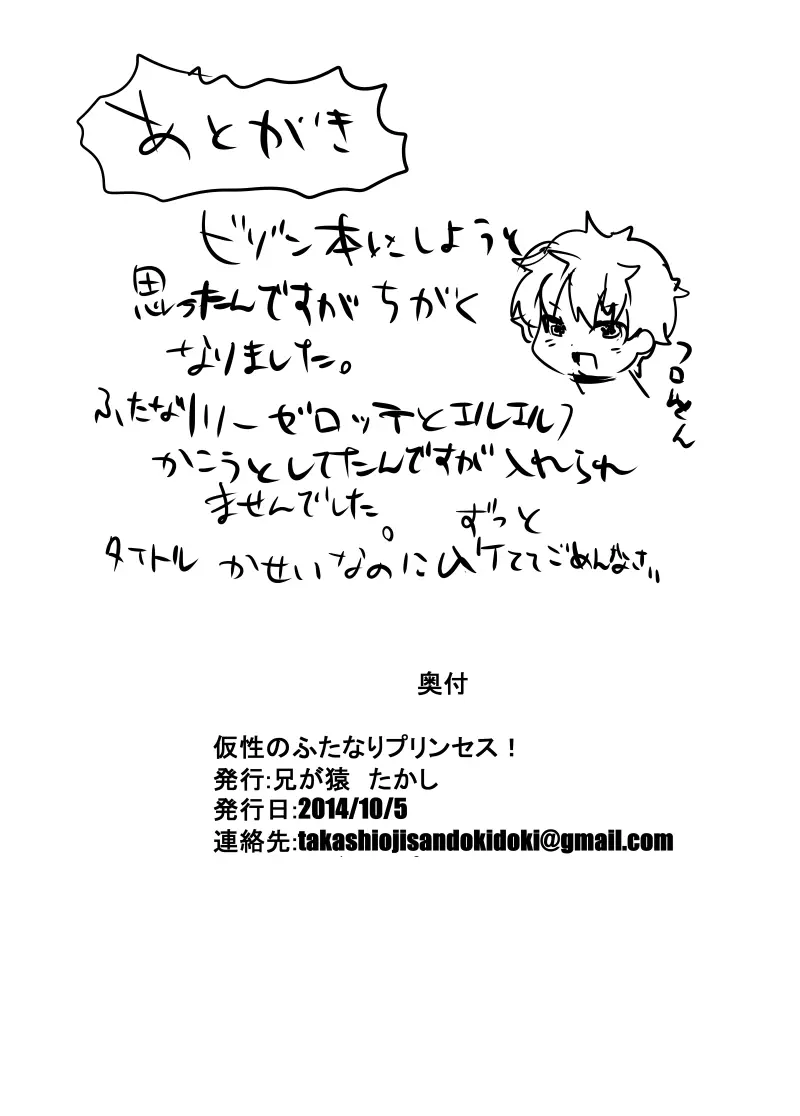 あとがき
ビゾン本にしようと
思ったんですがちがく
なりました。
ふたなりリーゼロッテとエルエルフ
かこうとしてたんですが入れられ
ませんでした。
ずっと
タイトル かせいなのにムケててごめんなさい
奥付
仮性のふたなりプリンセス！
発行:兄が猿 たかし
発行日:2014/10/5
連絡先:takashiojisandokidoki@gmail.com